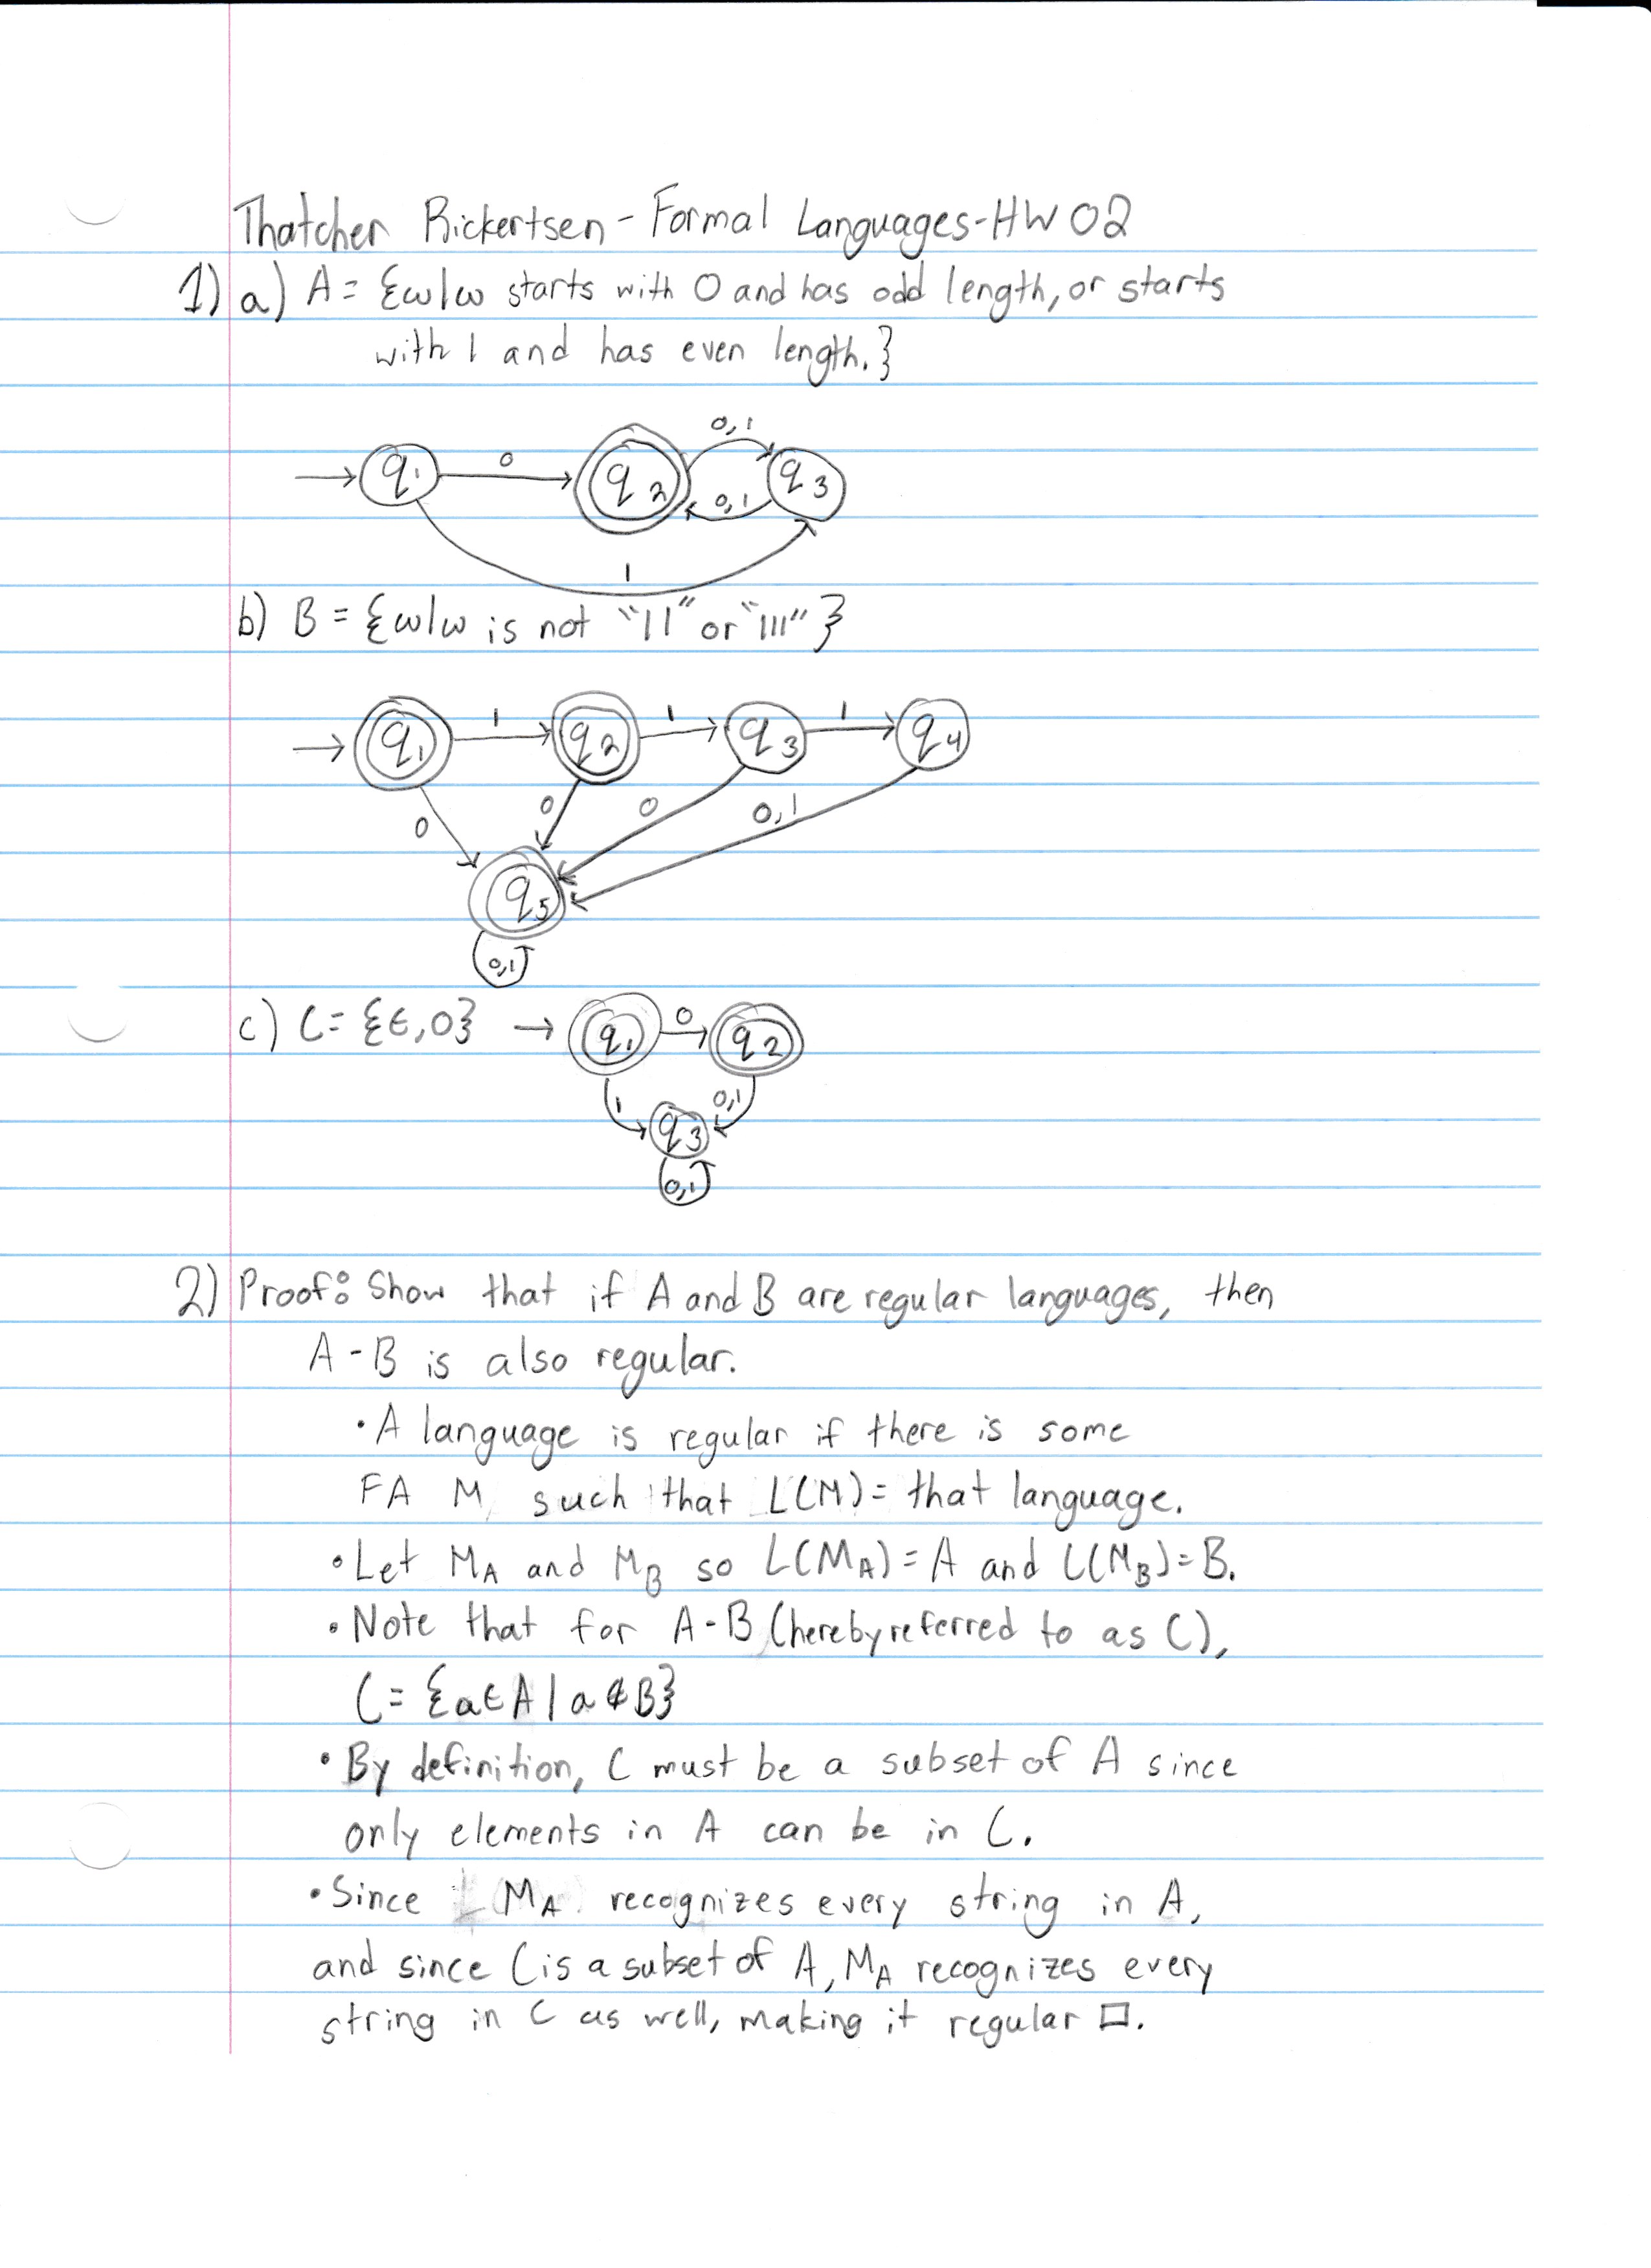 Thatcher Rickertsen - Formal Languages - HW 02
1) a) A = {ω|ω starts with 0 and has odd length, or starts
with 1 and has even length.}
0,1
q1 0 q2 q3
0,1
1
b) B = {ω|ω is not "11" or "111"}
q1 1 q2 1 q3 1 q4
0 0 0 0,1
q5
0,1
c) C = {ε,0} → q1 0 q2
1 0,1
q3
0,1
2) Proof: Show that if A and B are regular languages, then
A - B is also regular.
• A language is regular if there is some
FA M such that L(M) = that language.
• Let MA and MB so L(MA) = A and L(MB) = B.
• Note that for A - B (hereby referred to as C),
C = {a∈A | a∉B}
• By definition, C must be a subset of A since
only elements in A can be in C.
• Since MA recognizes every string in A,
and since C is a subset of A, MA recognizes every
string in C as well, making it regular □.